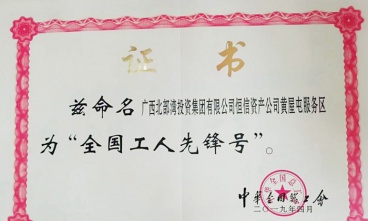 证书
兹命名广西北部湾投资集团有限公司恒信资产公司黄屋屯服务区
为“全国工人先锋号”。
中华全国总工会
二〇一九年四月